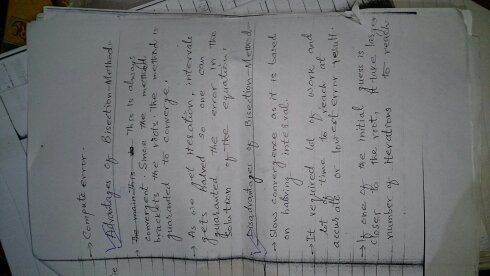 → Compute error.
Advantages of Bisection-Method-
→ This is always
convergent. Since the method
brackets the roots. The method is
guaranteed to converge.
→ As we get iteration, intervals
gets halved so one can
guaranteed the error in the
solution of the equation.
Disadvantages of Bisection-Method-
→ Slows convergence as it is based
on halving interval.
→ It required lot of work and
lot of time to reach at
accurate or lowest error result.
→ If one of the initial guess is
closer to the root, it take larger
number of iterations to reach